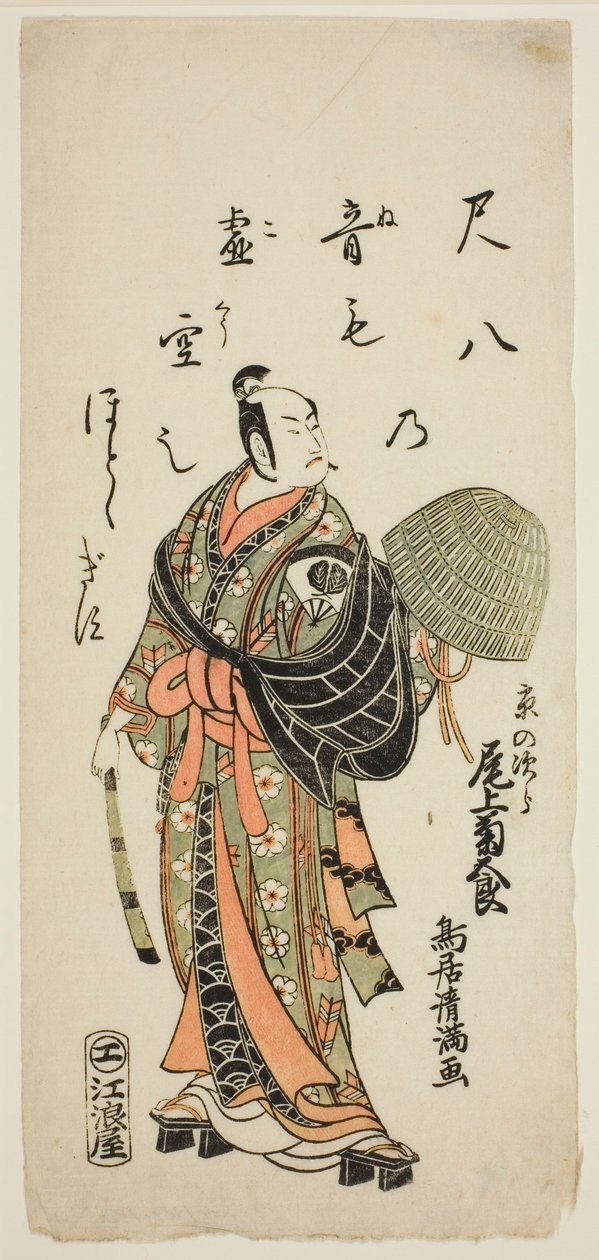 尺八乃
音毛
ね
虚空之
こくう
ほとゝぎす
京の次郎
尾上菊五郎
鳥居清満画
工
江浪屋